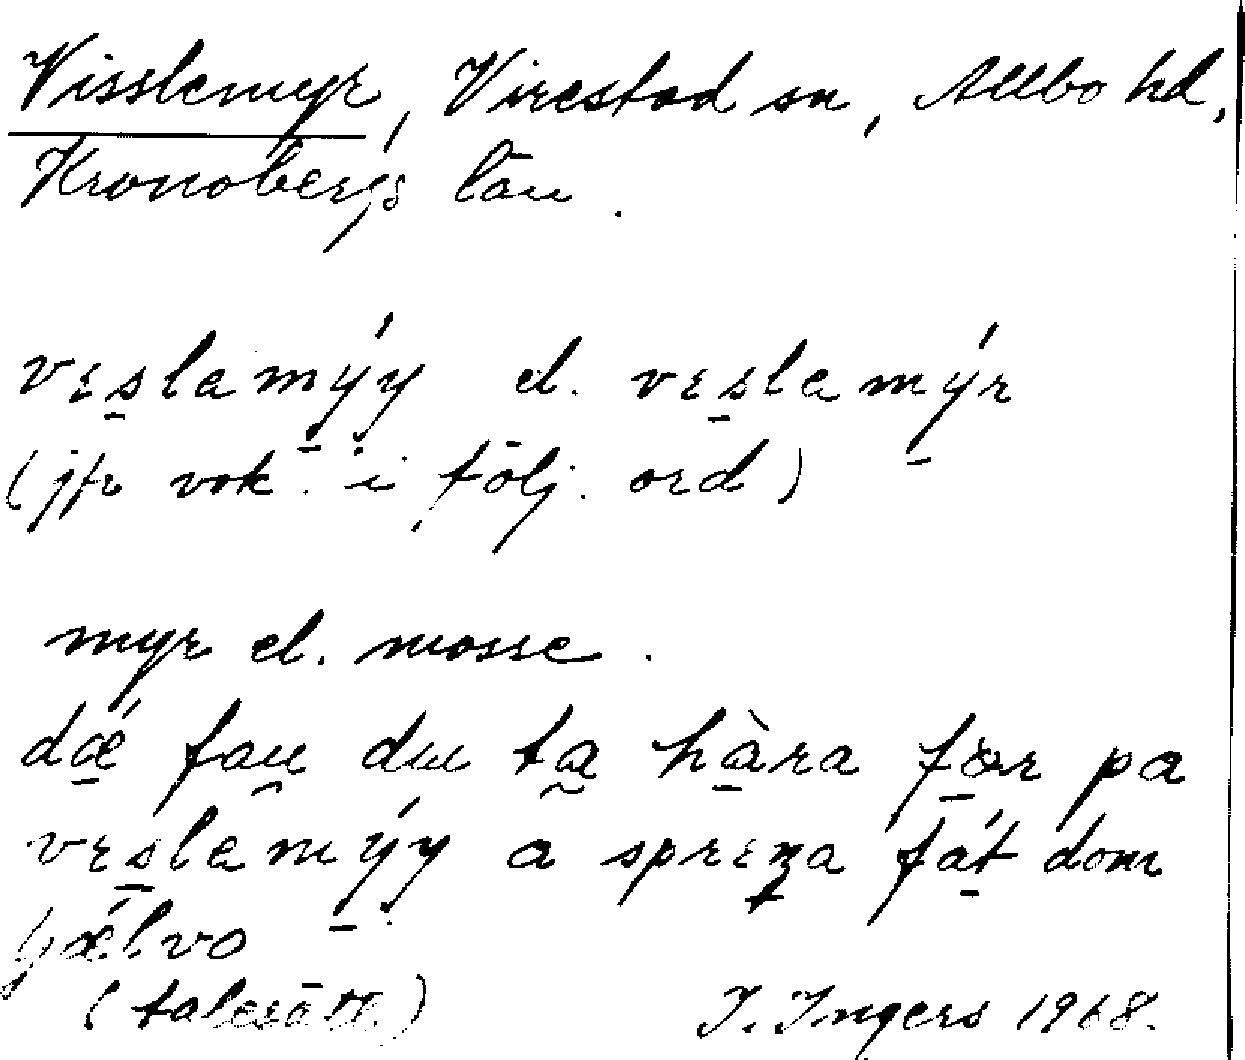 Visslemyr, Virestad sn, Allbo hd,
Kronobergs län.
vɛslamýy el. vɛslemýr
(jfr vok. i följ. ord)
myr el. mosse.
dǽ fau du ta hàra før pa
vɛslemýy a sprɛŋa fát dom
sǽlvo
(talesätt.) I. Ingers 1968.